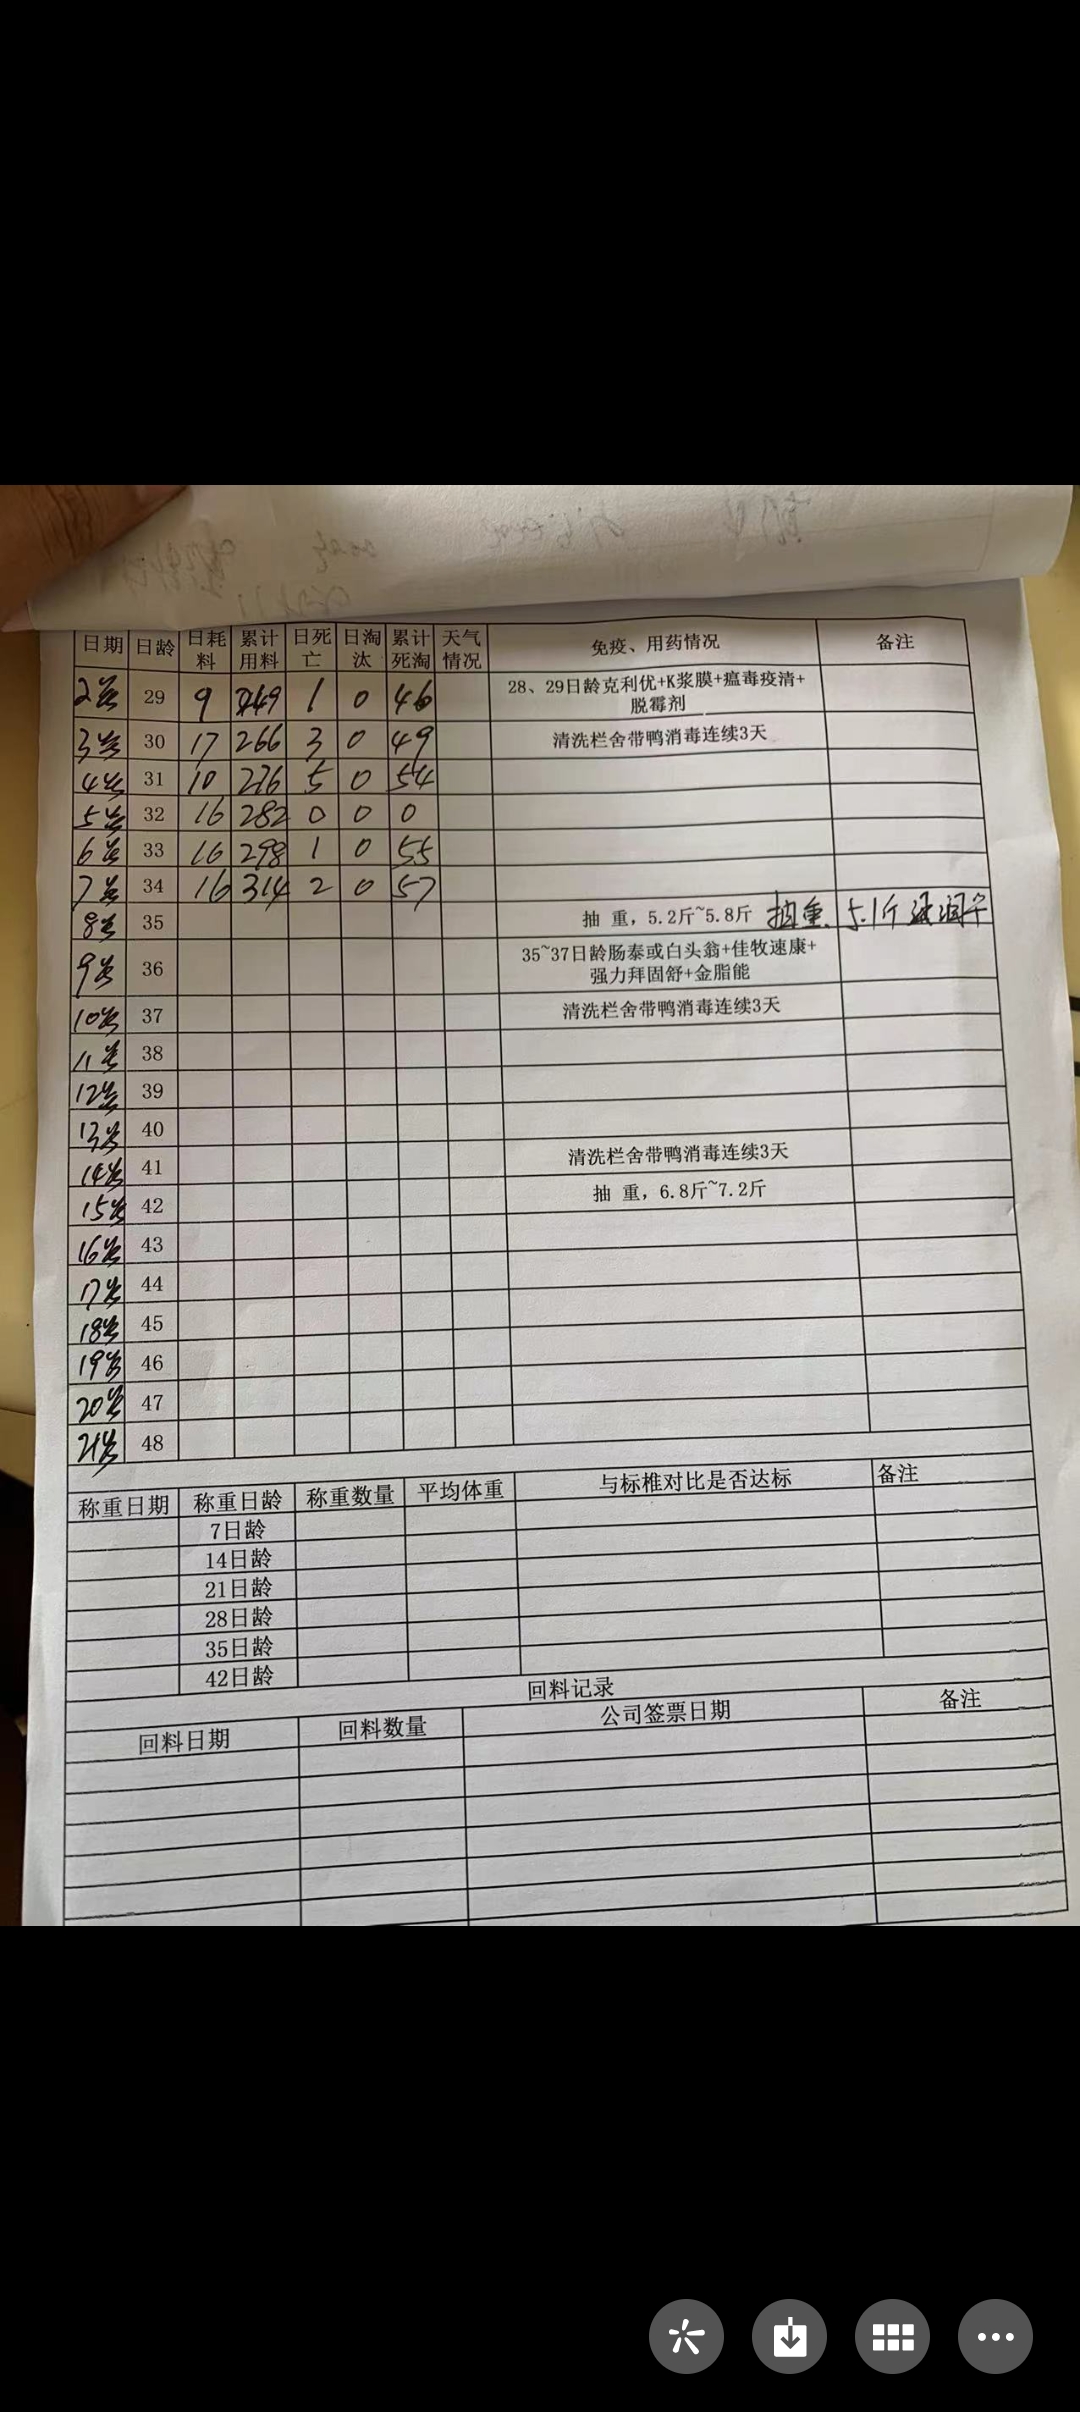 日期 日龄 日耗料 累计用料 日死亡 日淘汰 累计死淘 天气情况 免疫、用药情况 备注
2号 29 9 249 1 0 46 28、29日龄克利优+K浆膜+瘟毒疫清+
脱霉剂
3号 30 17 266 3 0 49 清洗栏舍带鸭消毒连续3天
4号 31 10 276 5 0 54
5号 32 16 282 0 0 0
6号 33 16 298 1 0 55
7号 34 16 314 2 0 57
8号 35 抽 重，5.2斤~5.8斤 抽重 5.1斤
9号 36 35~37日龄肠泰或白头翁+佳牧速康+
强力拜固舒+金脂能
10号 37 清洗栏舍带鸭消毒连续3天
11号 38
12号 39
13号 40
14号 41 清洗栏舍带鸭消毒连续3天
15号 42 抽 重，6.8斤~7.2斤
16号 43
17号 44
18号 45
19号 46
20号 47
21号 48
称重日期 称重日龄 称重数量 平均体重 与标椎对比是否达标 备注
7日龄
14日龄
21日龄
28日龄
35日龄
42日龄
回料记录
回料日期 回料数量 公司签票日期 备注